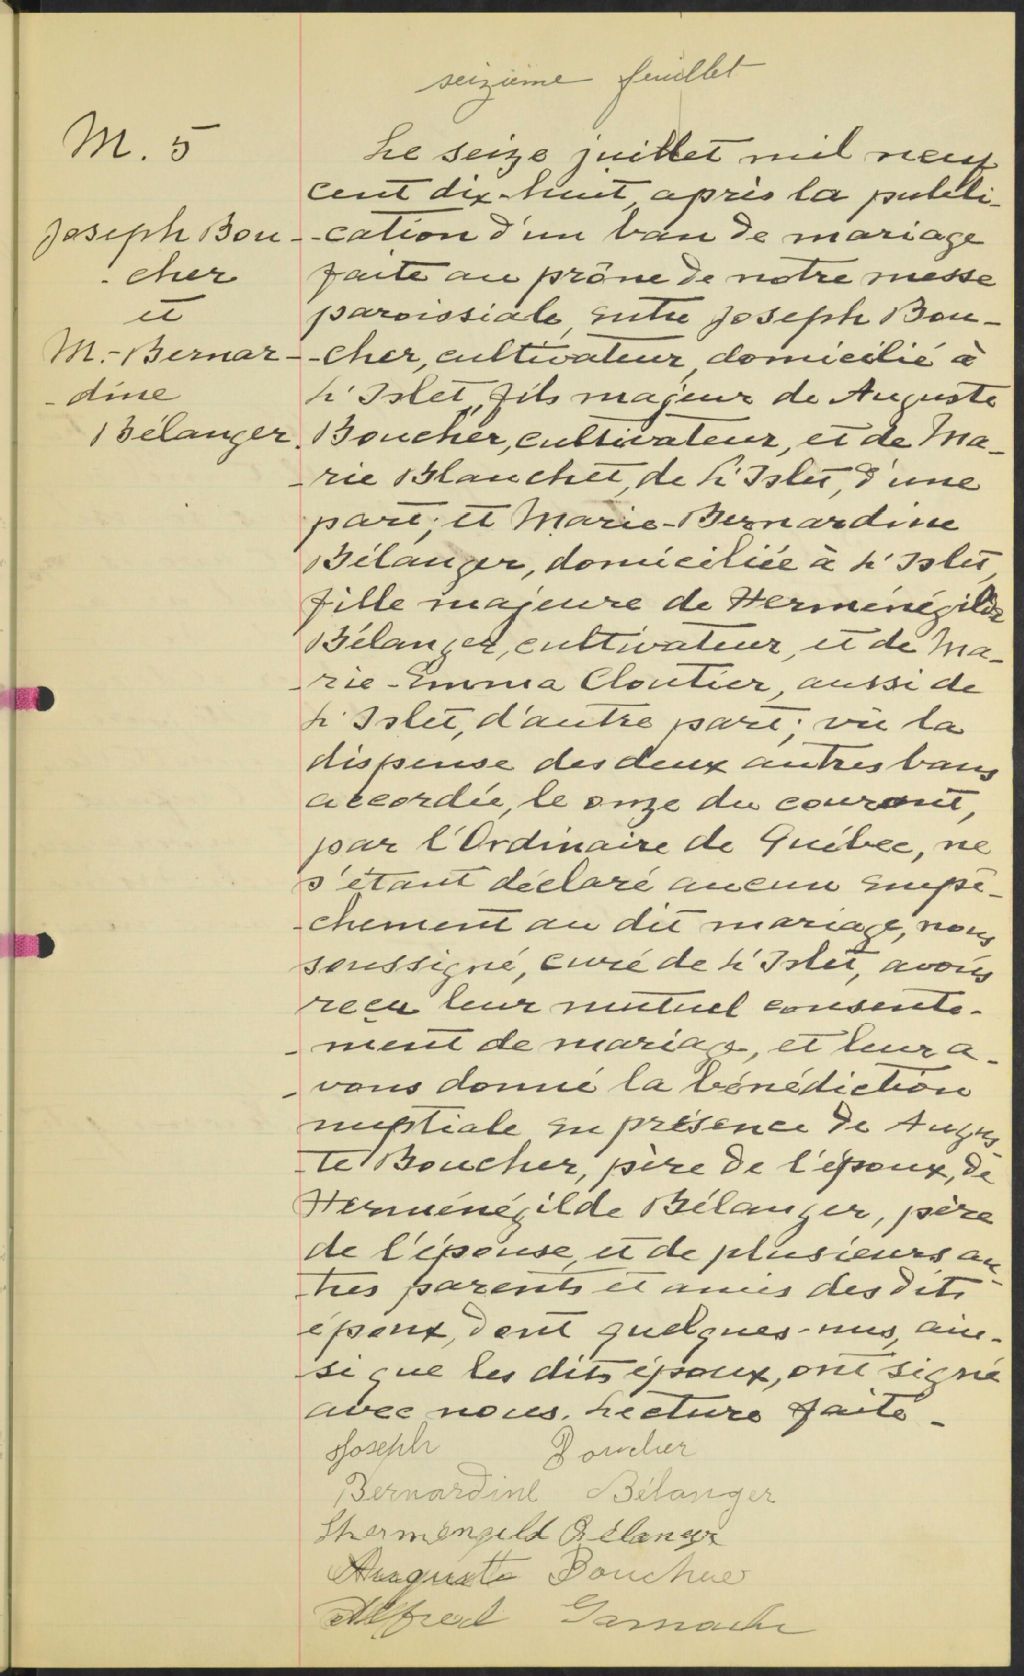 seizième feuillet
M. 5
Joseph Bou-
-cher
et
M.-Bernar-
-dine
Bélanger.
Le seize juillet mil neuf
cent dix-huit, après la publi-
-cation d'un ban de mariage
faite au prône de notre messe
paroissiale, entre Joseph Bou-
-cher, cultivateur, domicilié à
L'Islet, fils majeur de Auguste
Boucher, cultivateur, et de Ma-
-rie Blanchet, de L'Islet, d'une
part; et Marie-Bernardine
Bélanger, domiciliée à L'Islet,
fille majeure de Herménégilde
Bélanger, cultivateur, et de Ma-
-rie-Emma Cloutier, aussi de
L'Islet, d'autre part; vu la
dispense des deux autres bans
accordée, le onze du courant,
par l'Ordinaire de Québec, ne
s'étant déclaré aucun empê-
-chement au dit mariage, nous
soussigné, curé de L'Islet, avons
reçu leur mutuel consente-
-ment de mariage, et leur a-
-vons donné la bénédiction
nuptiale en présence de Augus-
-te Boucher, père de l'époux, de
Herménégilde Bélanger, père
de l'épouse, et de plusieurs au-
-tres parents et amis des dits
époux, dont quelques-uns, ain-
-si que les dits époux, ont signé
avec nous. Lecture faite -
Joseph Boucher
Bernardine Bélanger
Hermengild Bélanger
Auguste Boucher
Alfred Gamache